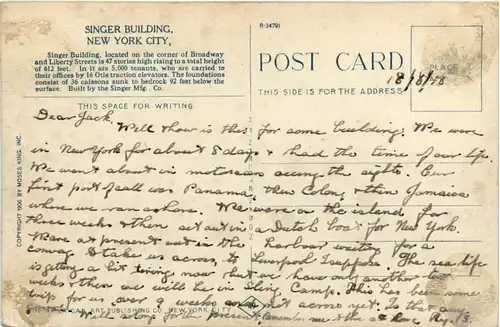 SINGER BUILDING,
NEW YORK CITY,
Singer Building, located on the corner of Broadway
and Liberty Streets is 47 stories high rising to a total height
of 612 feet. In it are 5,000 tenants, who are carried to
their offices by 16 Otis traction elevators. The foundations
consist of 36 caissons sunk to bedrock 92 feet below the
surface. Built by the Singer Mfg. Co.
R-34791
POST CARD
THIS SIDE IS FOR THE ADDRESS
PLACE
18/8/18
THIS SPACE FOR WRITING
COPYRIGHT 1906 BY MOSES KING, INC.
Dear Jack,
Well how is this for some building. We were
in New York for about 8 days & had the time of our life.
We went about in motorcars seeing the sights. Our
first port of call was Panama, then Colon, & then Jamaica
where we ran ashore. We were on the island for
three weeks & then set out in a Dutch boat for New York.
We are at present out in the harbour waiting for a
convoy to take us across, to Liverpool I suppose. The sea life
is getting a bit tiring now but we have only another two
weeks & then we will be in Sling Camp. This has been some
trip for us, over 9 weeks & not across yet.
ART PUBLISHING CO., NEW YORK CITY.
Well so long for the present. Remember me to the at home